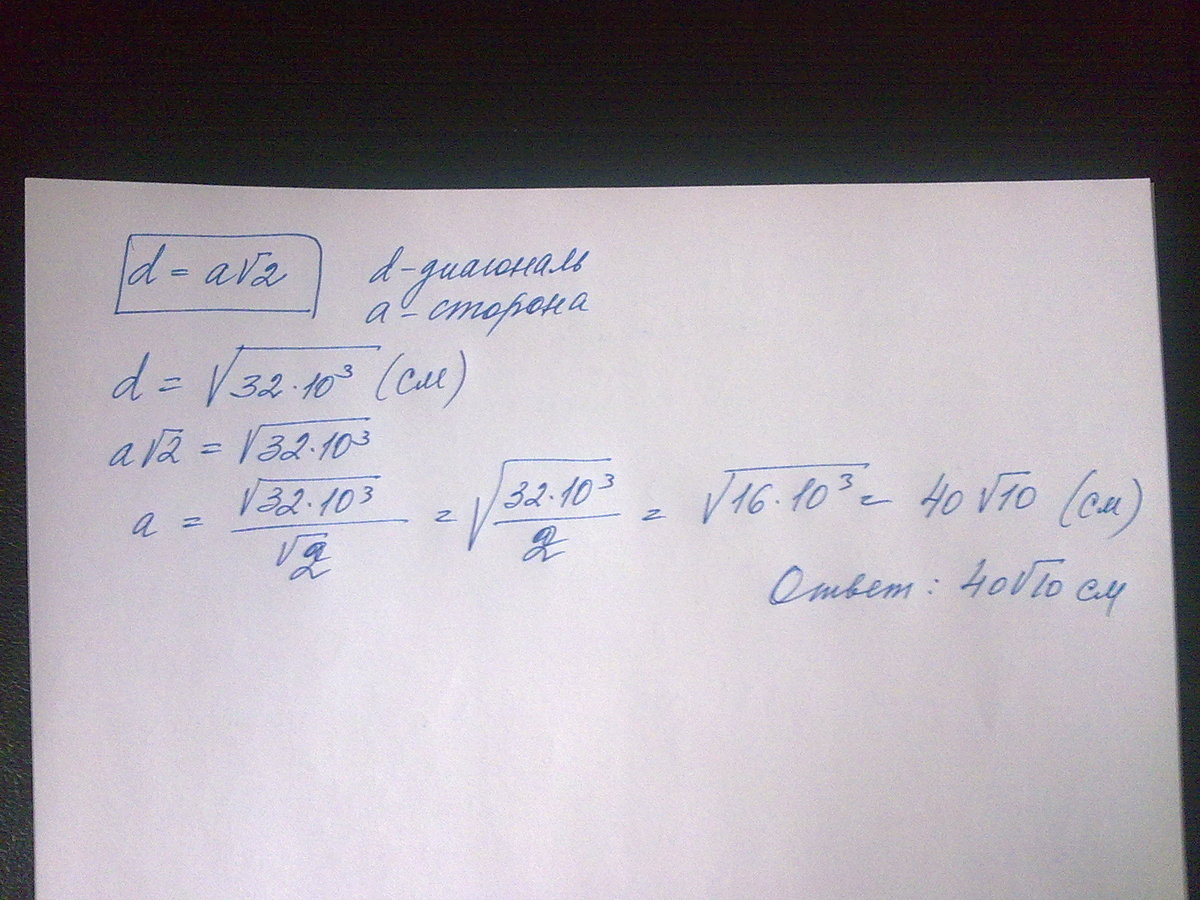 d = a√2 d - диагональ
a - сторона
d = √(32·10³) (см)
a√2 = √(32·10³)
a = √(32·10³)/√2 = √(32·10³/2) = √(16·10³) = 40√10 (см)
Ответ: 40√10 см